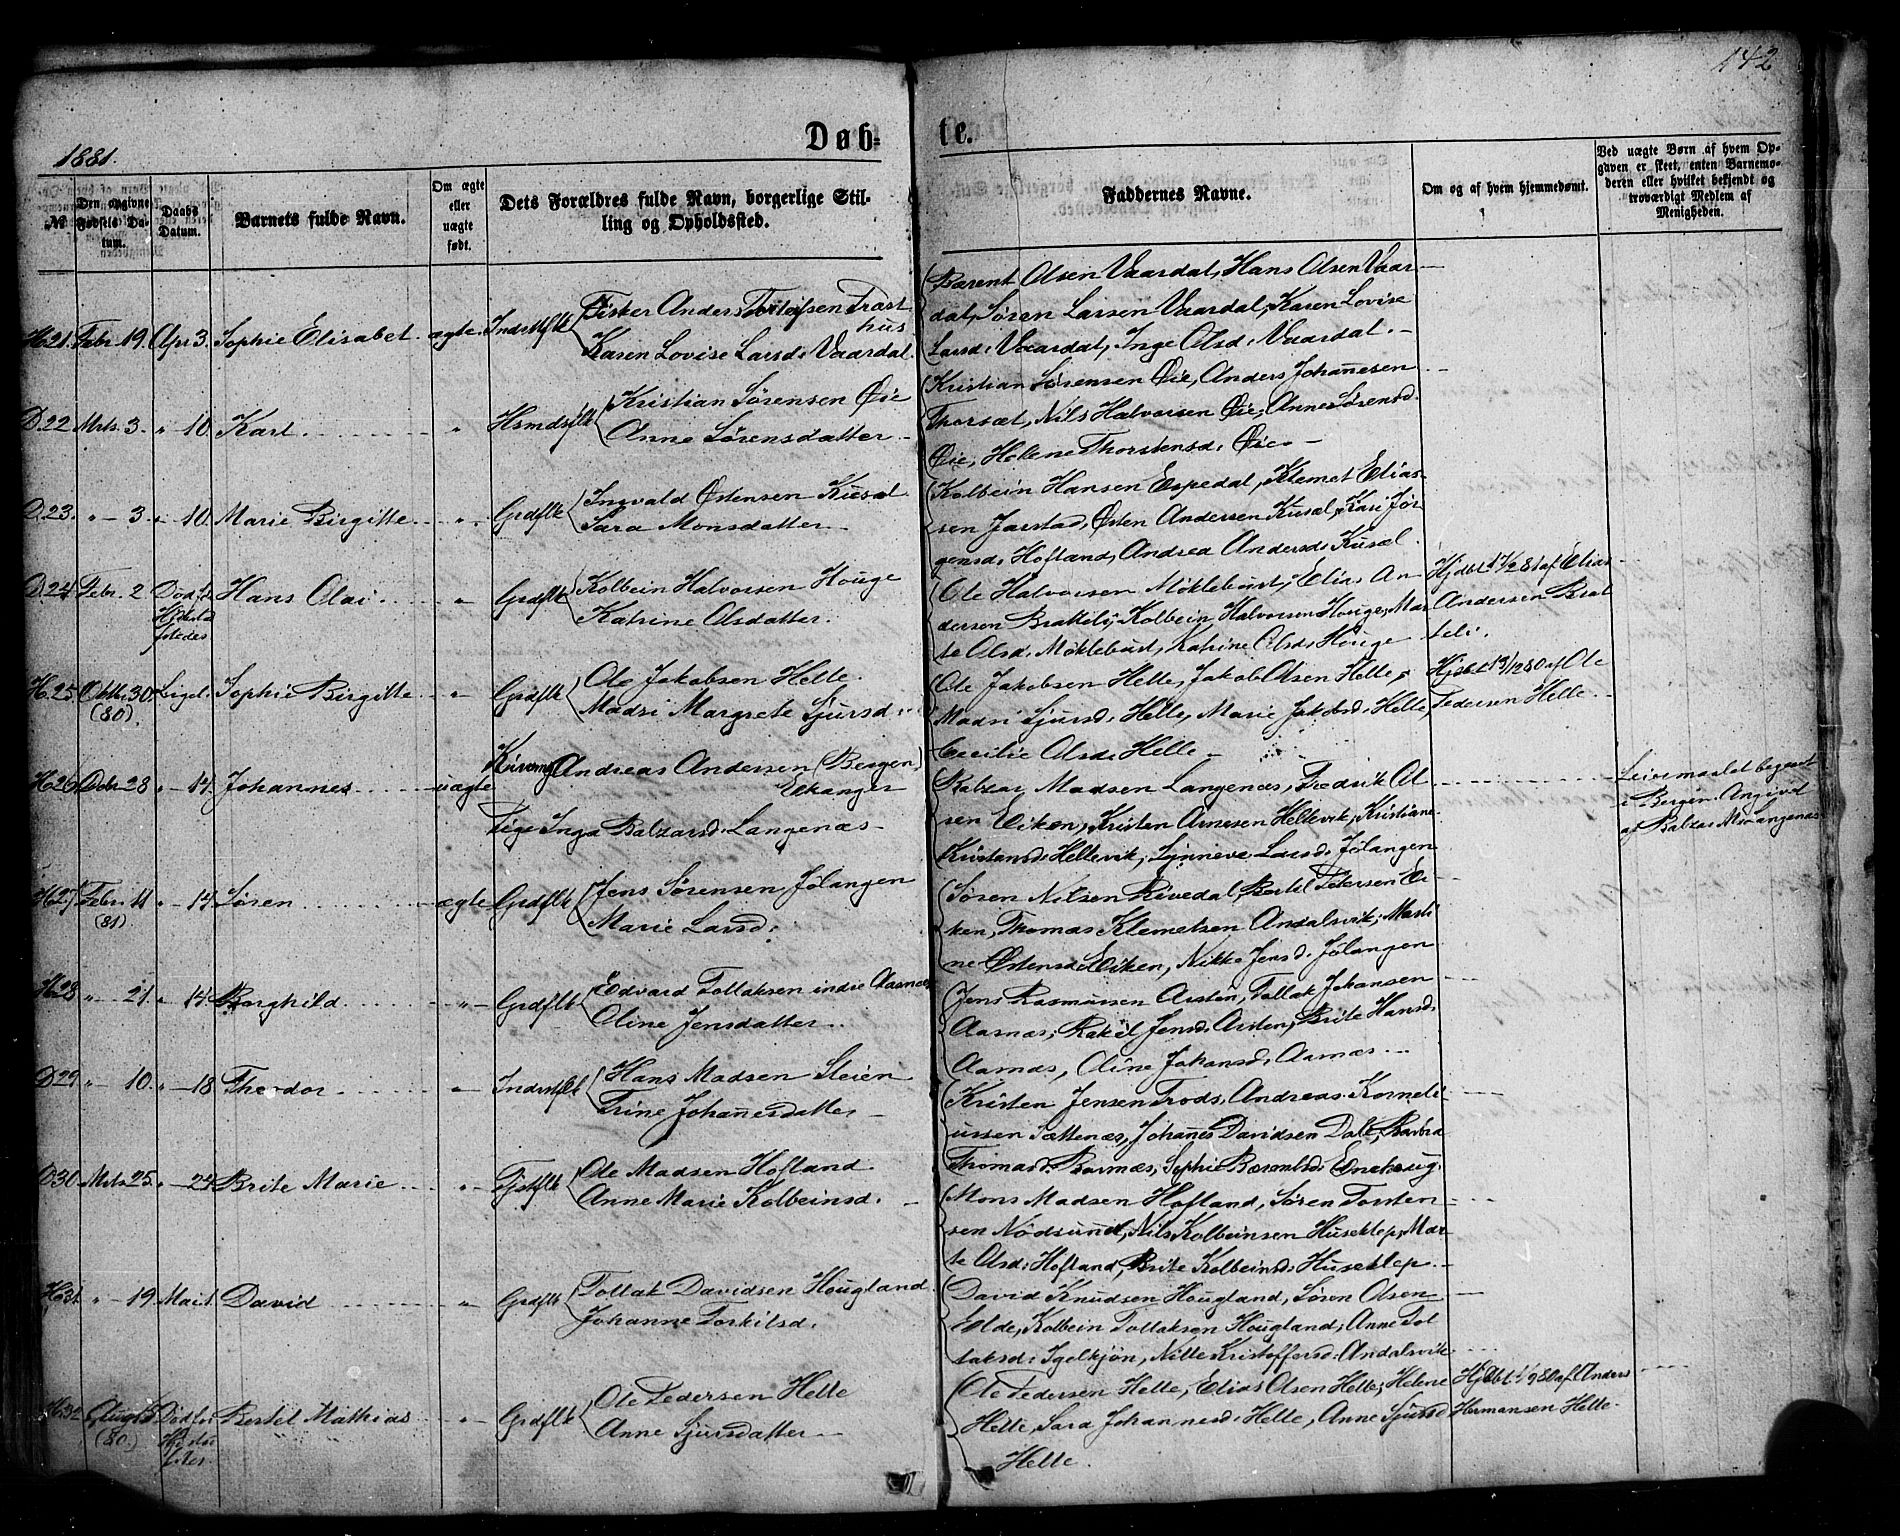 142
Døb-
te.
1881.
№
Den opgivne Fødsels Da-
tum.
Daabs
Datum.
Barnets fulde Navn.
Om ægte
eller
uægte
født.
Dets Forældres fulde Navn, borgerlige Stil-
ling og Opholdssted.
Faddernes Navne.
Om og af hvem hjemmedømt.
Ved uægte Børn af hvem Op-
gaven er skeet, enten Barnemo-
deren eller hvilket bekjendt og
troværdigt Medlem af
Menigheden.
H.21. Febr. 19. Apr 3. Sophie Elisabet. ægte. Inderstflk Fisker Anders Tollefsen Trast
hus
Karen Lovise Larsd: Vaardal.
Barent Olsen Vaardal, Hans Olsen Vaar-
dal, Søren Larsen Vaardal, Karen Lovise
Larsd: Vaardal, Inge Olsd: Vaardal.
D.22 Mrts. 3. " 10. Karl. " Hsmdsflk Kristian Sørensen Øie
Anne Sørensdatter
Kristian Sørensen Øie, Anders Johannesen
Thorsæt, Nils Halvorsen Øie, Anne Sørensd.
Øie, Helene Thorstensd: Øie
D.23. " 3 " 10. Marie Birgitte " Grdflk Ingvald Østensen Kusæl
Sara Monsdatter
Kolbein Hansen Espedal, Klemet Elias-
sen Jarstad, Østen Andersen Kusæl, Kari Jør-
gensd: Hofland, Andrea Andersd: Kusæl.
D.24 Febr. 2 Død Hans Olai " Grdflk Kolbein Halvorsen Houge
Katrine Olsdatter.
Ole Halvorsen Møklebust, Elias An-
dersen Brattelij Kolbein Halvorsen Houge, Mar-
te Olsd: Møklebust, Katrine Olsd: Houge
Hjdbt 1/2 81 af Elias
Andersen Brat
teli.
H.25 Oktbr. 30. (80). Ligel. Sophie Birgitte " Grdflk Ole Jakobsen Helle.
Madsi Margrete Sjursd:
Ole Jakobsen Helle, Jakob Olsen Helle,
Madsi Sjursd: Helle, Marie Jakobsd: Helle,
Cecilie Olsd: Helle
Hjdbt 13/12 80 af Ole
Pedersen Helle.
H26 Debr 28 " 14. Johannes uægte Andreas Andersen (Bergen)
Eikanger
Pige Inga Balzarsd: Langenæs
Balzar Madsen Langenæs, Fredrik Ol-
sen Eiken, Kristen Arnesen Hellevik, Kristiane
Kristensd: Hellevik, Synneve Larsd: Jølangen
Leiermaalet begaaet
i Bergen. Angivet
af Balzar M. Langenæs
H27 Febr. 11 (81) " 14. Søren ægte Grdflk Jens Sørensen Jølangen
Marie Larsd:
Søren Nilsen Rivedal, Bertel Petersen Ei-
ken, Thomas Klemetsen Andalsvik, Marti-
ne Østensd: Eiken, Nikke Jensd: Jølangen
H.28 " 21. " 14 Borghild " Grdflk Edvard Tollaksen indre Aasnæs
Oline Jensdatter.
Jens Rasmusen Arsten, Tollak Johansen
Aasnæs, Rakel Jensd: Arsten, Brite Hansd:
Aasnæs, Oline Johansd: Aasnæs
D29 " 10. " 18 Theodor " Inderstflk Hans Madsen Steien
Trine Johannesdatter
Kristen Jensen Trods, Andreas Korneli-
ussen Sættenæs, Johannes Davidsen Dale, Barbra
Thomasd: Barnæs, Sophie
D30 Mrts 25. " 24 Brite Marie " Grdflk Ole Madsen Hofland
Anne Marie Kolbeinsd.
Mons Madsen Hofland, Søren Torsten-
sen Nødsund, Nils Kolbeinsen Huseklep, Mar-
te Olsd: Hofland, Brite Kolbeinsd: Huseklep.
H31 " 19. Mai 1. David " Grdflk Tollak Davidsen Hougland.
Johanne Torkilsd.
David Knudsen Hougland, Søren Olsen
Elde, Kolbein Tollaksen Hougland, Anne Tol
laksd: Igelkjøn, Nille Kristoffersd: Andalsvik
H.32 (80.) Bertel Mathias " Grdflk Ole Pedersen Helle
Anne Sjursdatter
Ole Pedersen Helle, Elias Olsen Helle, Helene
Helle, Sara Johannesd: Helle, Anne Sjursd
Helle.
Hjdbt 1/9 80 af Anders
Hermansen Helle.